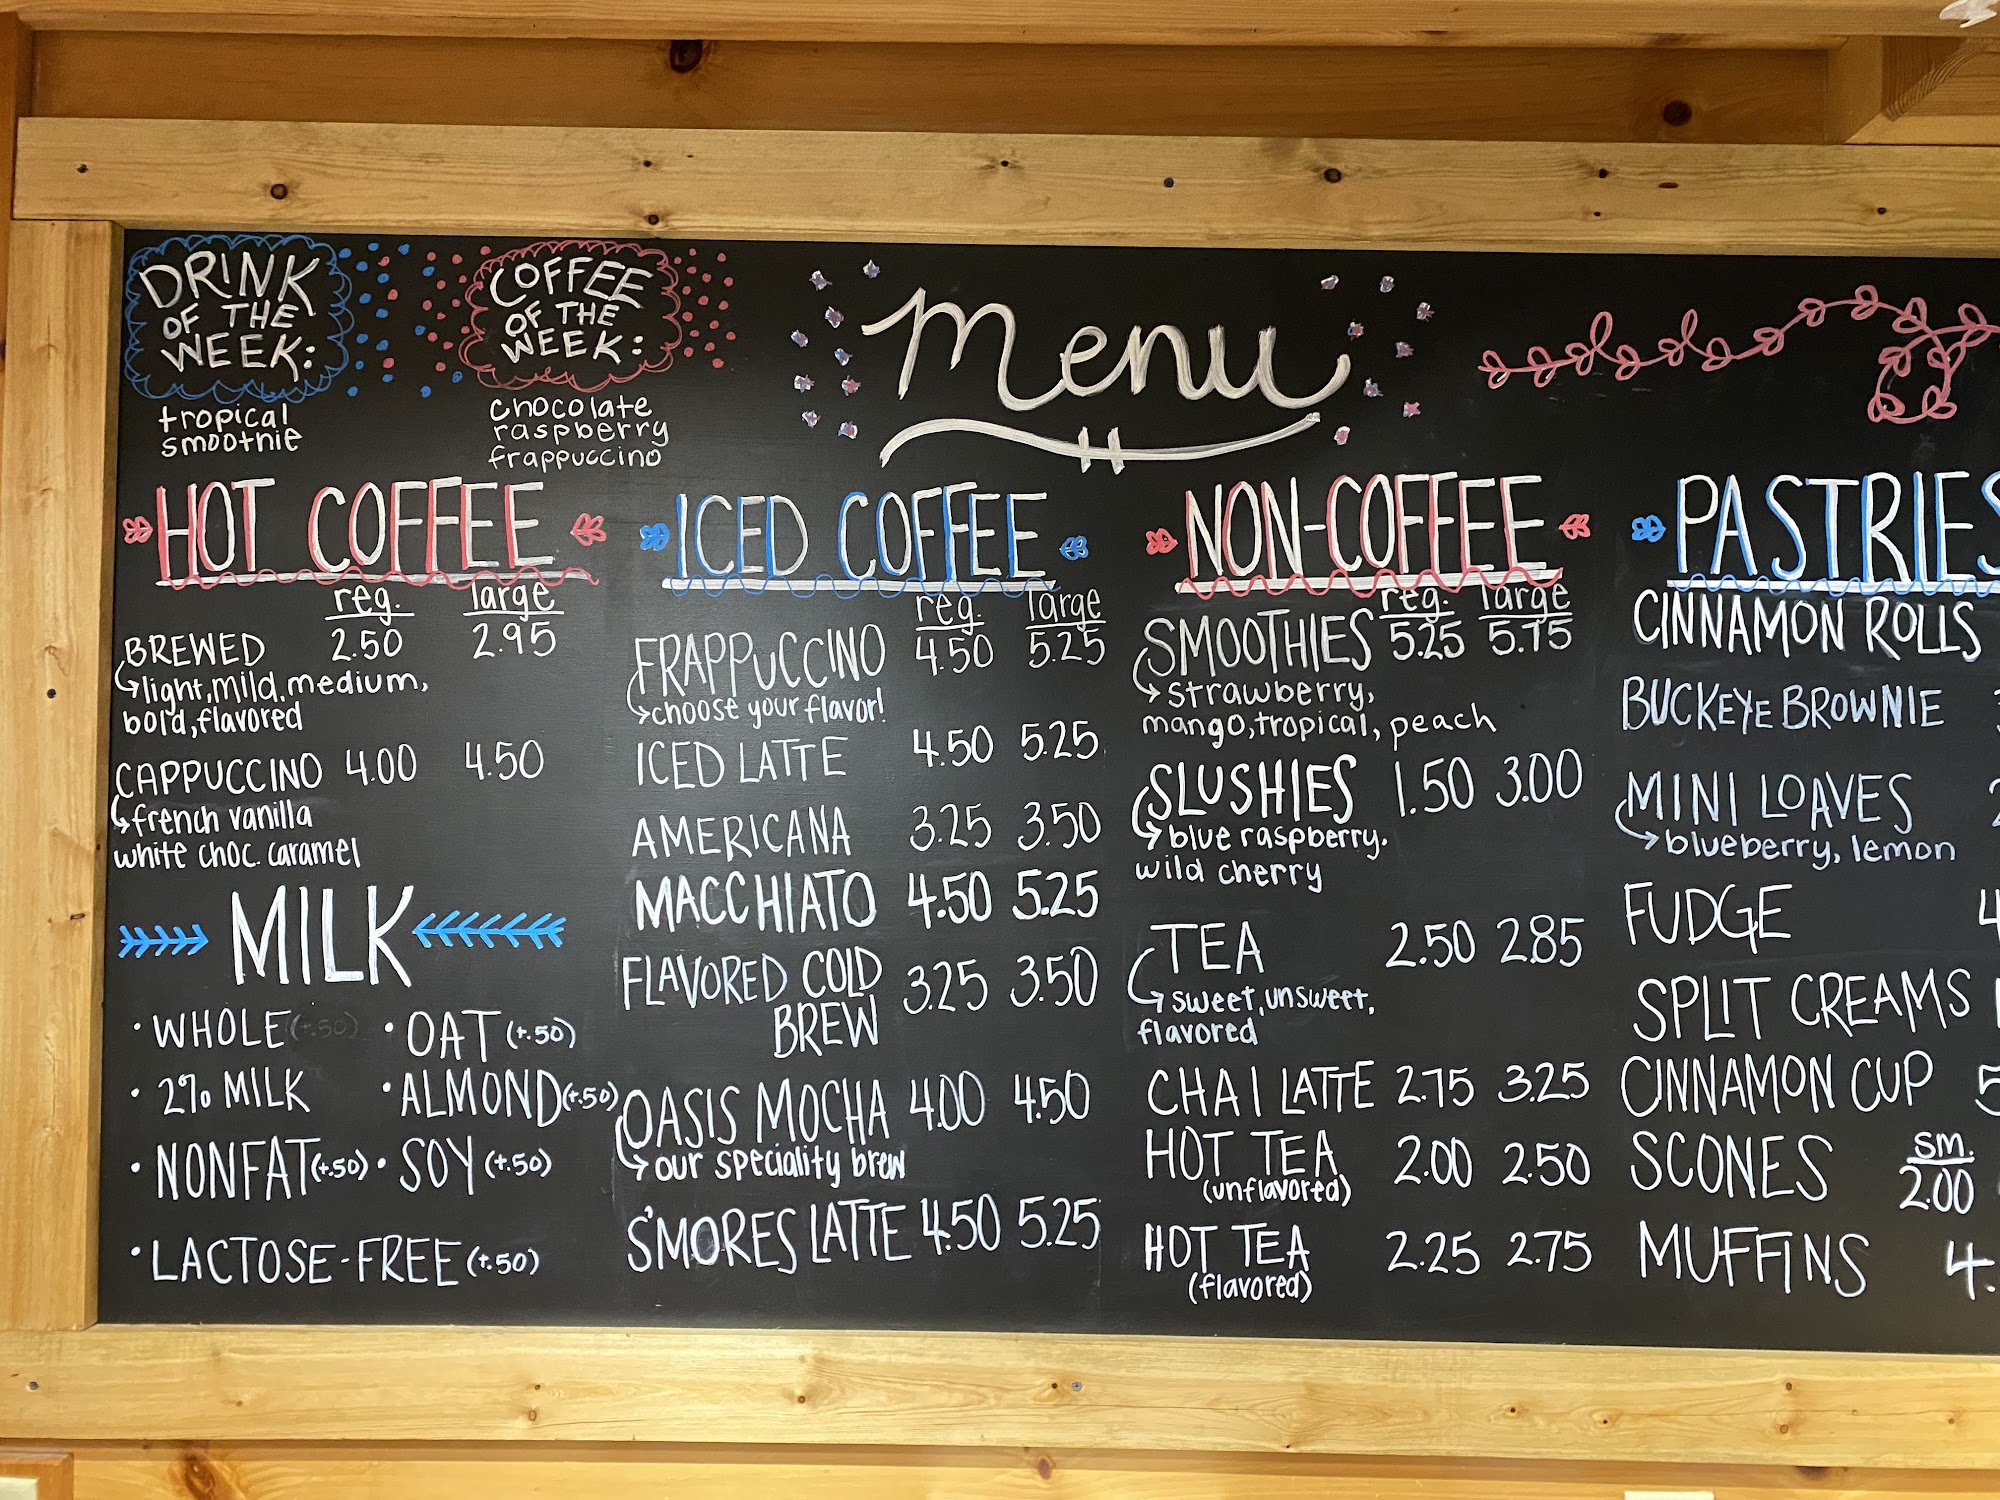 DRINK
OF THE
WEEK:
tropical
smoothie
COFFEE
OF THE
WEEK:
chocolate
raspberry
frappuccino
menu
HOT COFFEE
reg. large
BREWED 2.50 2.95
light, mild, medium,
bold, flavored
CAPPUCCINO 4.00 4.50
french vanilla
white choc. caramel
MILK
• WHOLE (+.50)
• 2% MILK
• NONFAT (+.50)
• LACTOSE-FREE (+.50)
• OAT (+.50)
• ALMOND (+.50)
• SOY (+.50)
ICED COFFEE
reg. large
FRAPPUCCINO 4.50 5.25
choose your flavor!
ICED LATTE 4.50 5.25
AMERICANA 3.25 3.50
MACCHIATO 4.50 5.25
FLAVORED COLD 3.25 3.50
BREW
OASIS MOCHA 4.00 4.50
our speciality brew
S'MORES LATTE 4.50 5.25
NON-COFFEE
reg. large
SMOOTHIES 5.25 5.75
strawberry,
mango, tropical, peach
SLUSHIES 1.50 3.00
blue raspberry,
wild cherry
TEA 2.50 2.85
sweet, unsweet,
flavored
CHAI LATTE 2.75 3.25
HOT TEA 2.00 2.50
(unflavored)
HOT TEA 2.25 2.75
(flavored)
PASTRIES
CINNAMON ROLLS
BUCKEYE BROWNIE
MINI LOAVES
blueberry, lemon
FUDGE 4
SPLIT CREAMS
CINNAMON CUP 5
SM.
SCONES 2.00
MUFFINS 4.